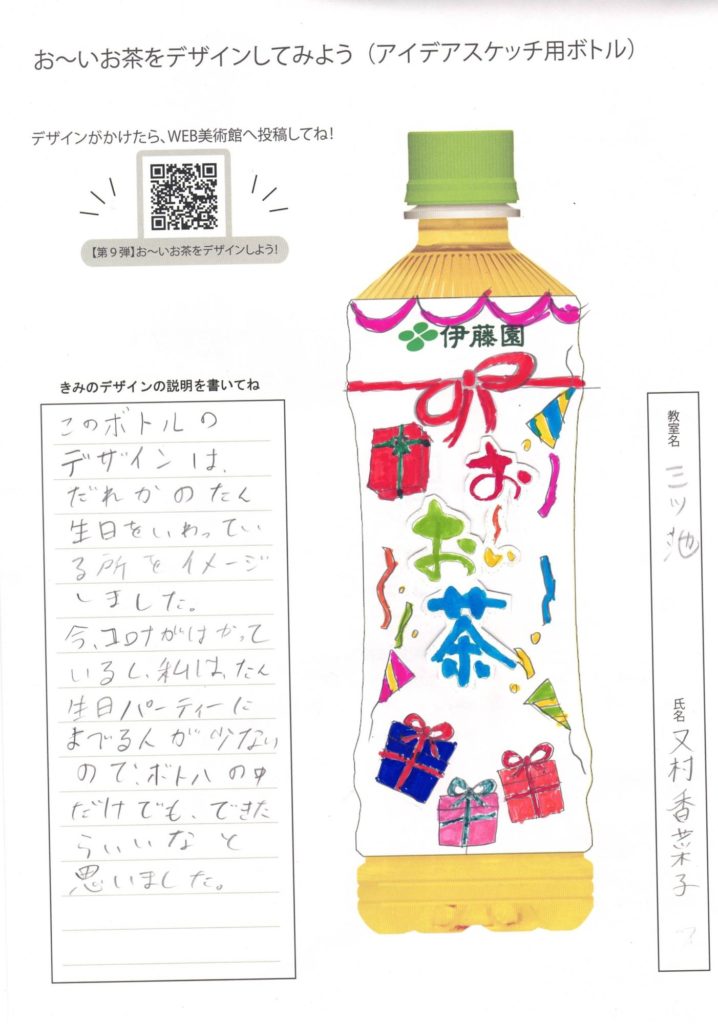 お〜いお茶をデザインしてみよう（アイデアスケッチ用ボトル）
デザインがかけたら、WEB美術館へ投稿してね！
【第９弾】お〜いお茶をデザインしよう！
きみのデザインの説明を書いてね
このボトルの
デザインは、
だれかのたん
生日をいわってい
る所をイメージ
しました。
今、コロナがはやって
いるし、私は、たん
生日パーティーに
よでるんが少ない
ので、ボトルの中
だけでも、できた
らいいなと
思いました。
伊藤園
お〜い
お
茶
教室名
三ツ池
氏名
又村香菜子